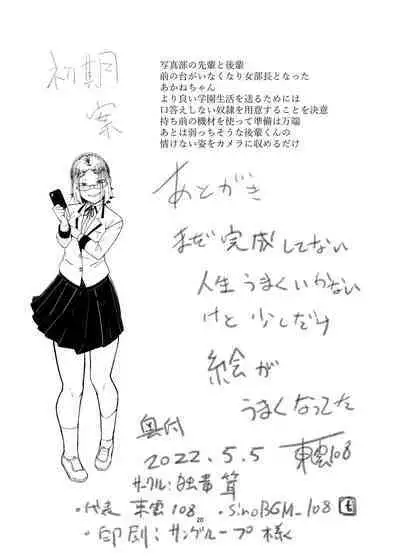 初期
案
写真部の先輩と後輩
前の台がいなくなり女部長となった
あかねちゃん
より良い学園生活を送るためには
口答えしない奴隷を用意することを決意
持ち前の機材を使って準備は万端
あとは弱っちそうな後輩くんの
情けない姿をカメラに収めるだけ
あとがき
まだ完成してない
人生うまくいかない
けど少しだけ
絵が
うまくなってた
奥付
2022.5.5
東雲108
サークル:独帯茸
・代表 東雲108 ・SinoBGM_108
20
・印刷:サングループ様